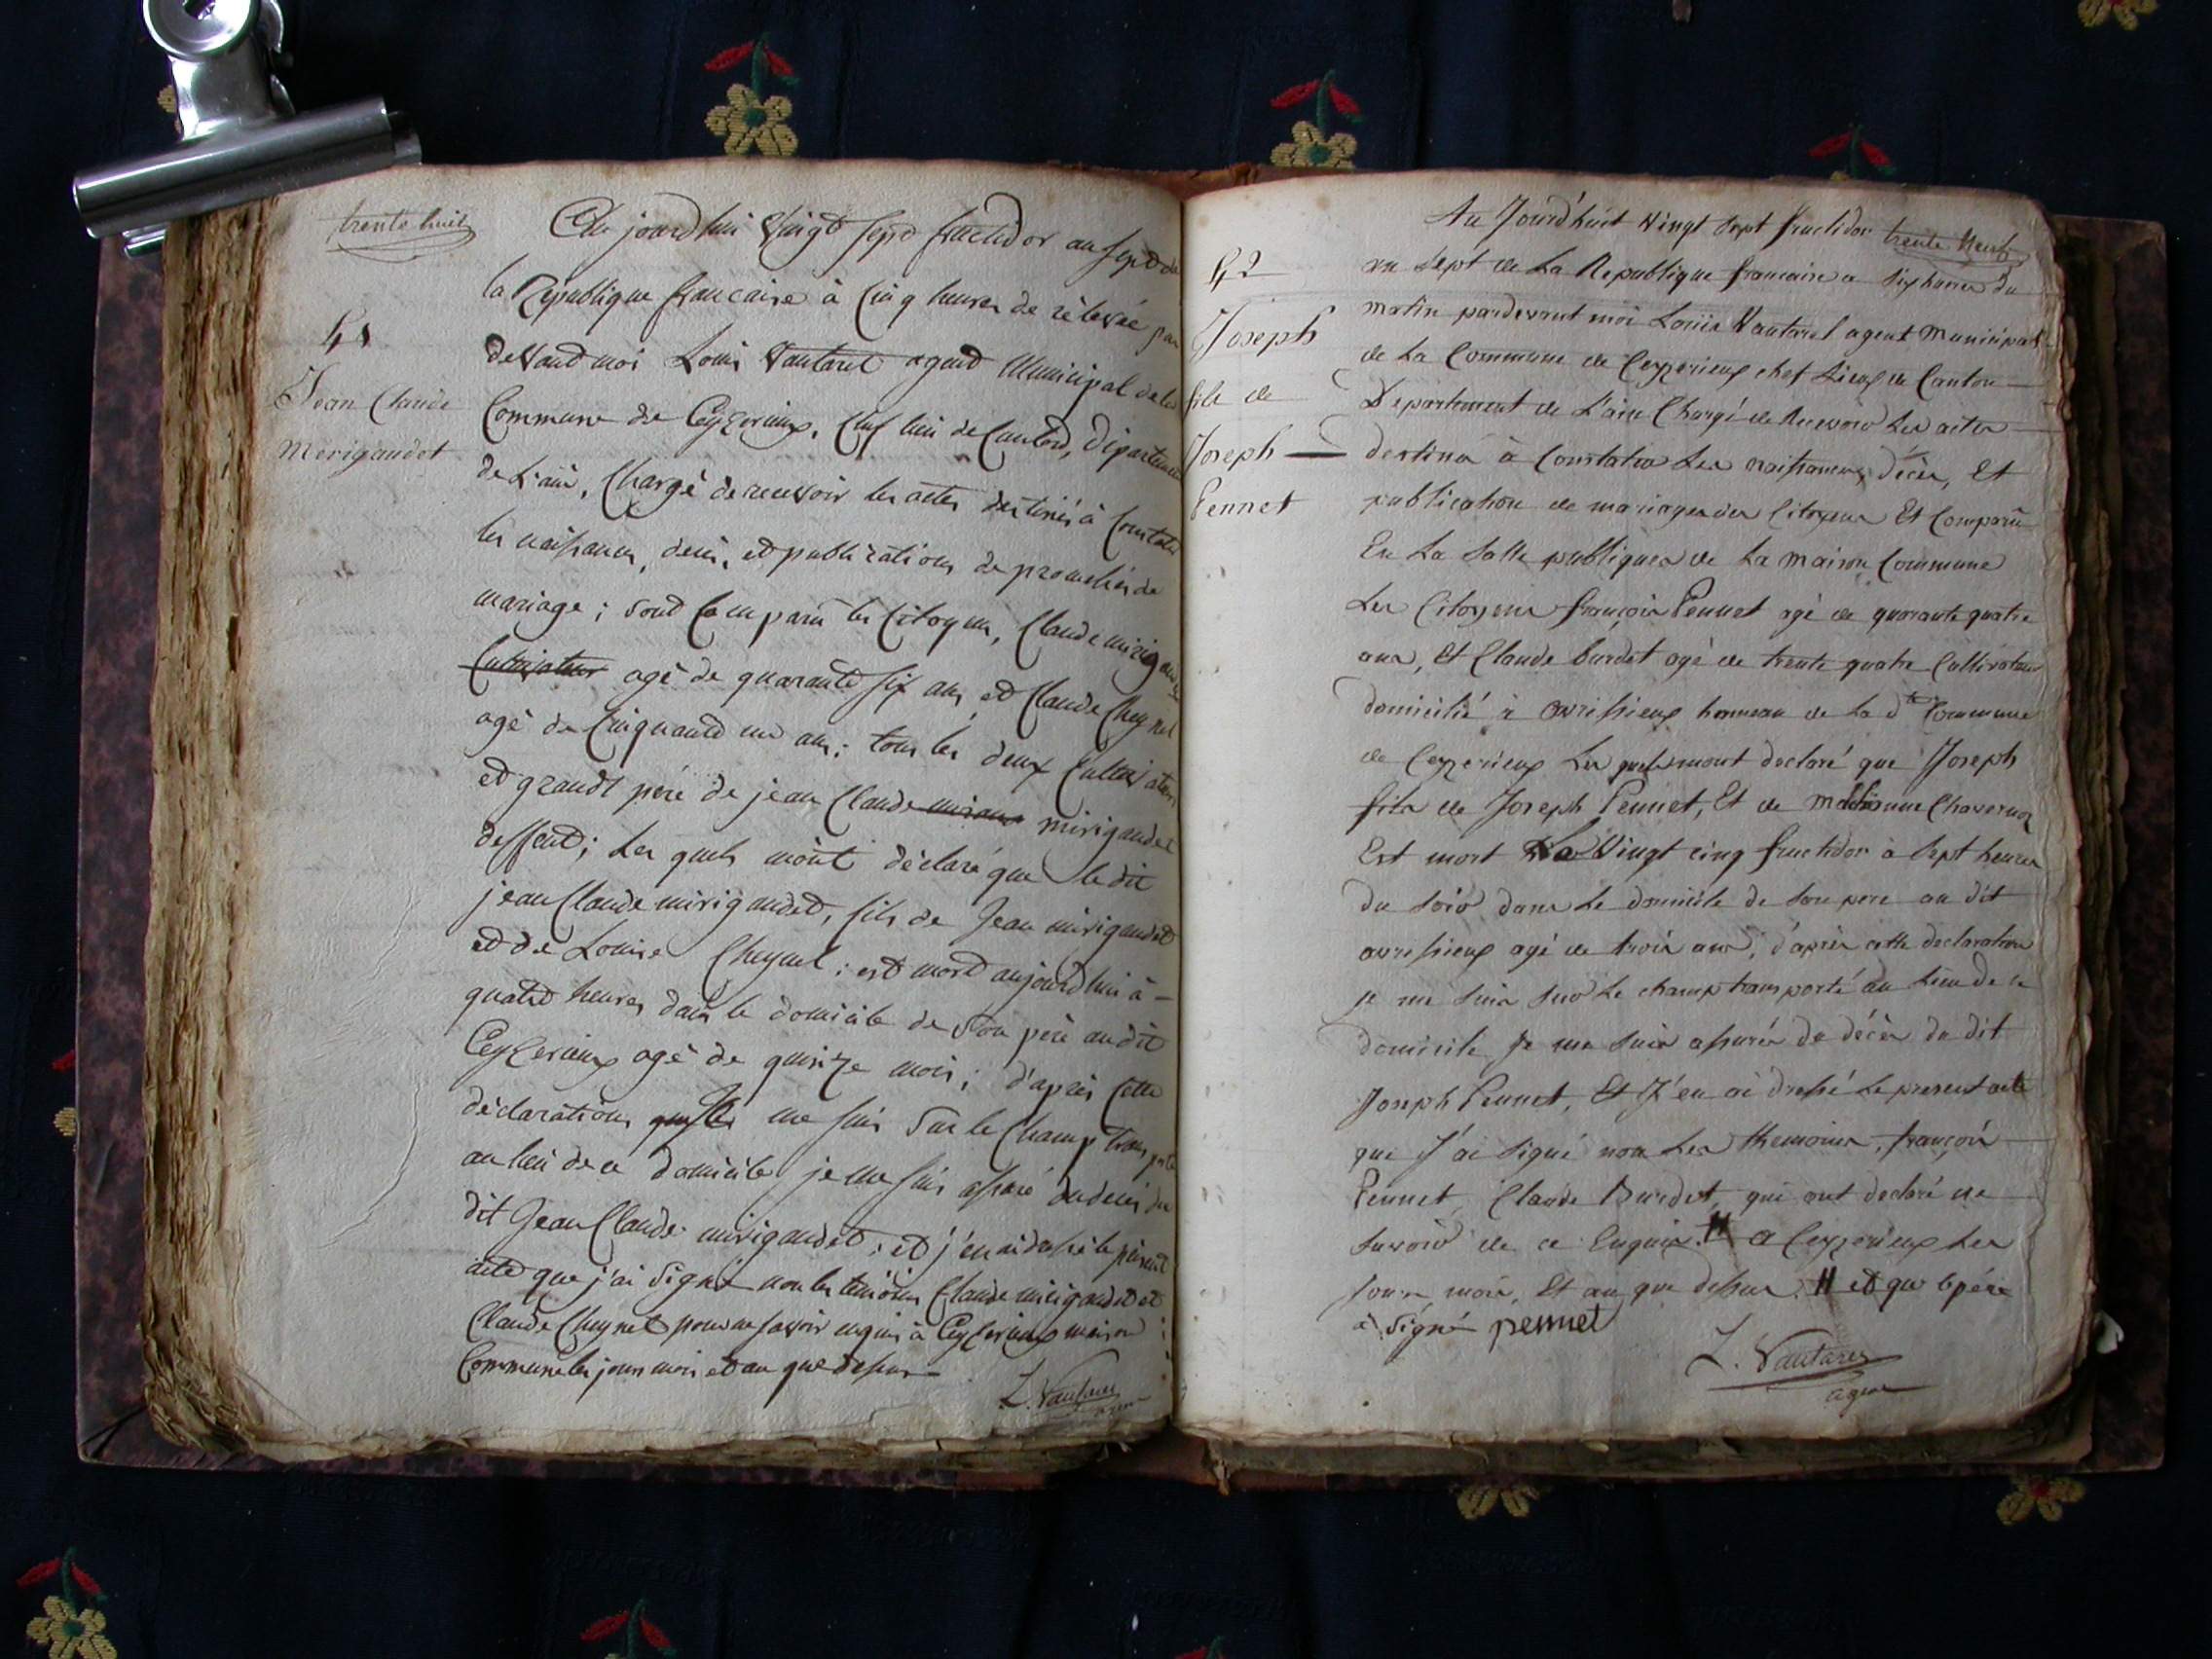 trente huit
41
Jean Claude
Merigaudet
Au jourdhui Vingt sept fructidor an sept de
la Republique francaise à Cinq heures de rélevée par
devand moi Louis Vautaret agend Municipal de la
Commune de Ceyzerieux, Chef lieu de Cantord, département
de L'ain, Chargé de recevoir les actes destinés à Constater
les naissances, deces, et publications de promesses de
mariage; sont Comparu les Citoyens, Claude mirigaudet
Cultivateur agé de quarante six ans, et Claude Cheynel
agé de Cinquante un ans; tous les deux Cultivateurs
et grandt péré de jean Claude mirigaudet
deffunt; Les quels m'ont déclaré que le dit
jean Claude mirigaudet, fils de Jean mirigaudet
et de Louise Cheynel; est mort aujourdhui à -
quatre heures dans le domicile de son père audit
Ceyzerieux agé de quinze mois; d'après cette
déclaration Je me suis sur le Champ transporté
au lieu de ce domicile je me suis assuré du deces du
dit Jean Claude mirigaudet; et j'en ai dressé le présent
acte que j'ai signé non les temoins Claude mirigaudet et
Claude Cheynel pour ne savoir enquis à Ceyzerieux maison
Commune les jour mois et an que dessus
L. Vautaret
agent
trente Neuf
42
Joseph
fils de
Joseph
Pennet
Au Jourd'huit Vingt sept fructidor
an sept de La Republique francaise a six heures du
matin pardevant moi Louis Vautaret agent Municipal
de La Commune de Ceyzerieux chef Lieux de Canton
Departement de L'ain Chargé de Recevoir Les actes
destinés à Constater Les naissances, décès, Et
publication de mariages des Citoyens Et Comparû
En La Salle publiques de La Maison Commune
Les Citoyens françois Pennet agé de quarante quatre
ans, Et Claude burdet agé de trente quatre Cultivateurs
domicilié à avrissieux hameau de La dte Commune
de Ceyzerieux Les quels mont declaré que Joseph
fils de Joseph Pennet, Et de Chavernoz
Est mort Le Vingt cinq fructidor à Sept heures
du soir dans Le domicile de son pere au dit
avrissieux agé de trois ans, d'après cette declaration
je me suis sur Le champ transporté au Lieu de ce
domicile Je me suis assurés du décès du dit
Joseph Pennet, Et J'en ai dressé Le present acte
que J'ai signé non Les themoins, françois
Pennet, Claude Burdet, qui ont declaré ne
savoir de ce Enquis # a Ceyzerieux Les
jour, mois, Et an que dessus # et que le péré
a signé pennet
L. Vautaret
agent